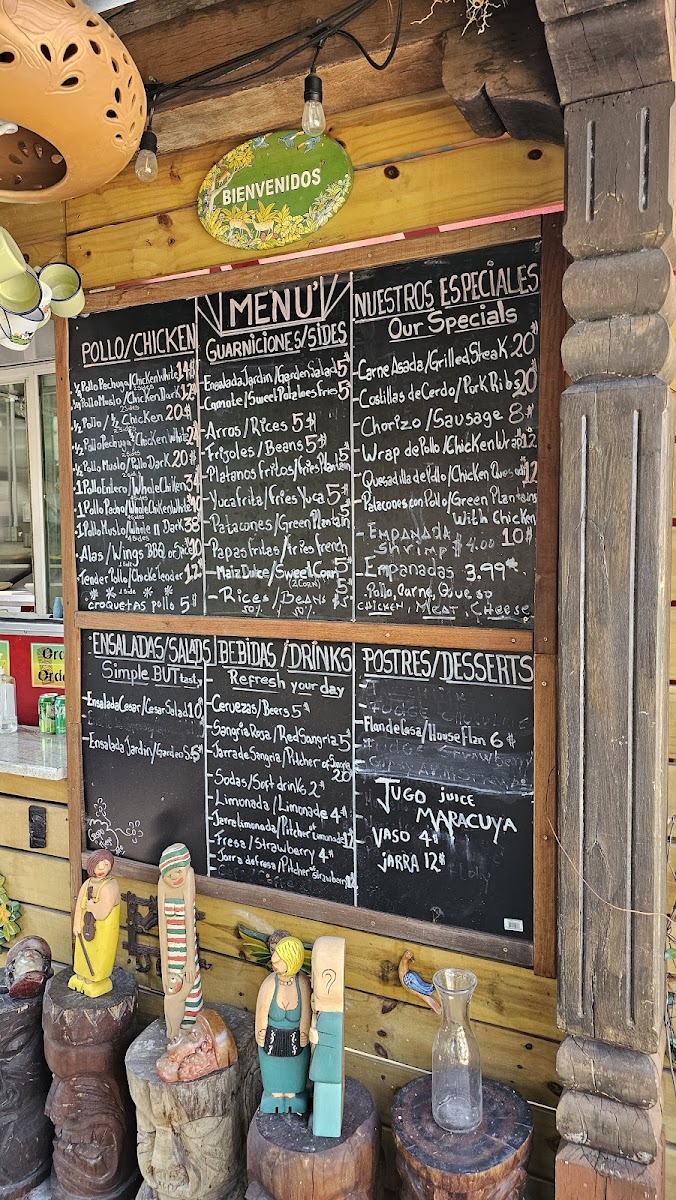 BIENVENIDOS
MENU
POLLO/CHICKEN
¼ Pollo Pechuga/Chicken White 14$
2 Sides
¼ Pollo Muslo/Chicken Dark 12$
2 Sides
½ Pollo/½ Chicken 20$
2 Sides
½ Pollo Pechuga/½ Chicken White
½ Pollo Muslo/Pollo Dark 20$
1 Pollo Entero/Whole Chiken 34
4 Sides
1 Pollo Pecho/Whole Chicken White
1 Pollo Muslo/Whole Dark 38
4 Sides
-Alas/Wings BBQ or Spice 10
1 Side
-Tender Pollo/Chicke Tender 12$
1 Side
CROQUETAS POLLO 5$
GUARNICIONES/SIDES
-Ensalada Jardin/Garden Salad 5$
-Camote/Sweet Potatoes Fries 5
-Arros/Rices 5$
-Frijoles/Beans 5$
-Platanos Fritos/Fries Plantain 5
-Yuca frita/Fries Yuca 5$
-Patacones/Green Plantain 5
-Papas fritas/fries french
-Maiz Dulce/Sweel Corn 5
(2 CORN)
-Rices/Beans 5$
50% 50%
NUESTROS ESPECIALES
Our Specials
-Carne Asada/Grilled Steak 20$
-Costillas de Cerdo/Pork Ribs 20
-Chorizo/Sausage 8$
-Wrap de Pollo/Chicken Wrap 12
-Quesadilla de Pollo/Chicken 12
-Patacones con Pollo/Green Plantains
With Chicken
10$
-EMPANADA
Shrimp $4.00
-Empanadas 3.99
Pollo, Carne, Queso
CHICKEN, MEAT, CHEESE
ENSALADAS/SALADS
Simple BUT tasty
-Ensalada Cesar/Cesar Salad 10$
-Ensalada Jardin/Garden S. 5$
BEBIDAS/DRINKS
Refresh your day
-Cervezas/Beers 5$
-Sangria Rosa/Red Sangria 5
-Jarra de Sangria/Pitcher of Sangria
20
-Sodas/Soft drinks 2$
-Limonada/Limonade 4$
-Jarra Limonada/Pitcher of Limonade 12
-Fresa/Strawberry 4$
-Jarra de fresa/Pitcher of strawberry 12
POSTRES/DESSERTS
-Flan de Casa/House Flan 6$
JUGO juice
MARACUYA
VASO 4$
JARRA 12$